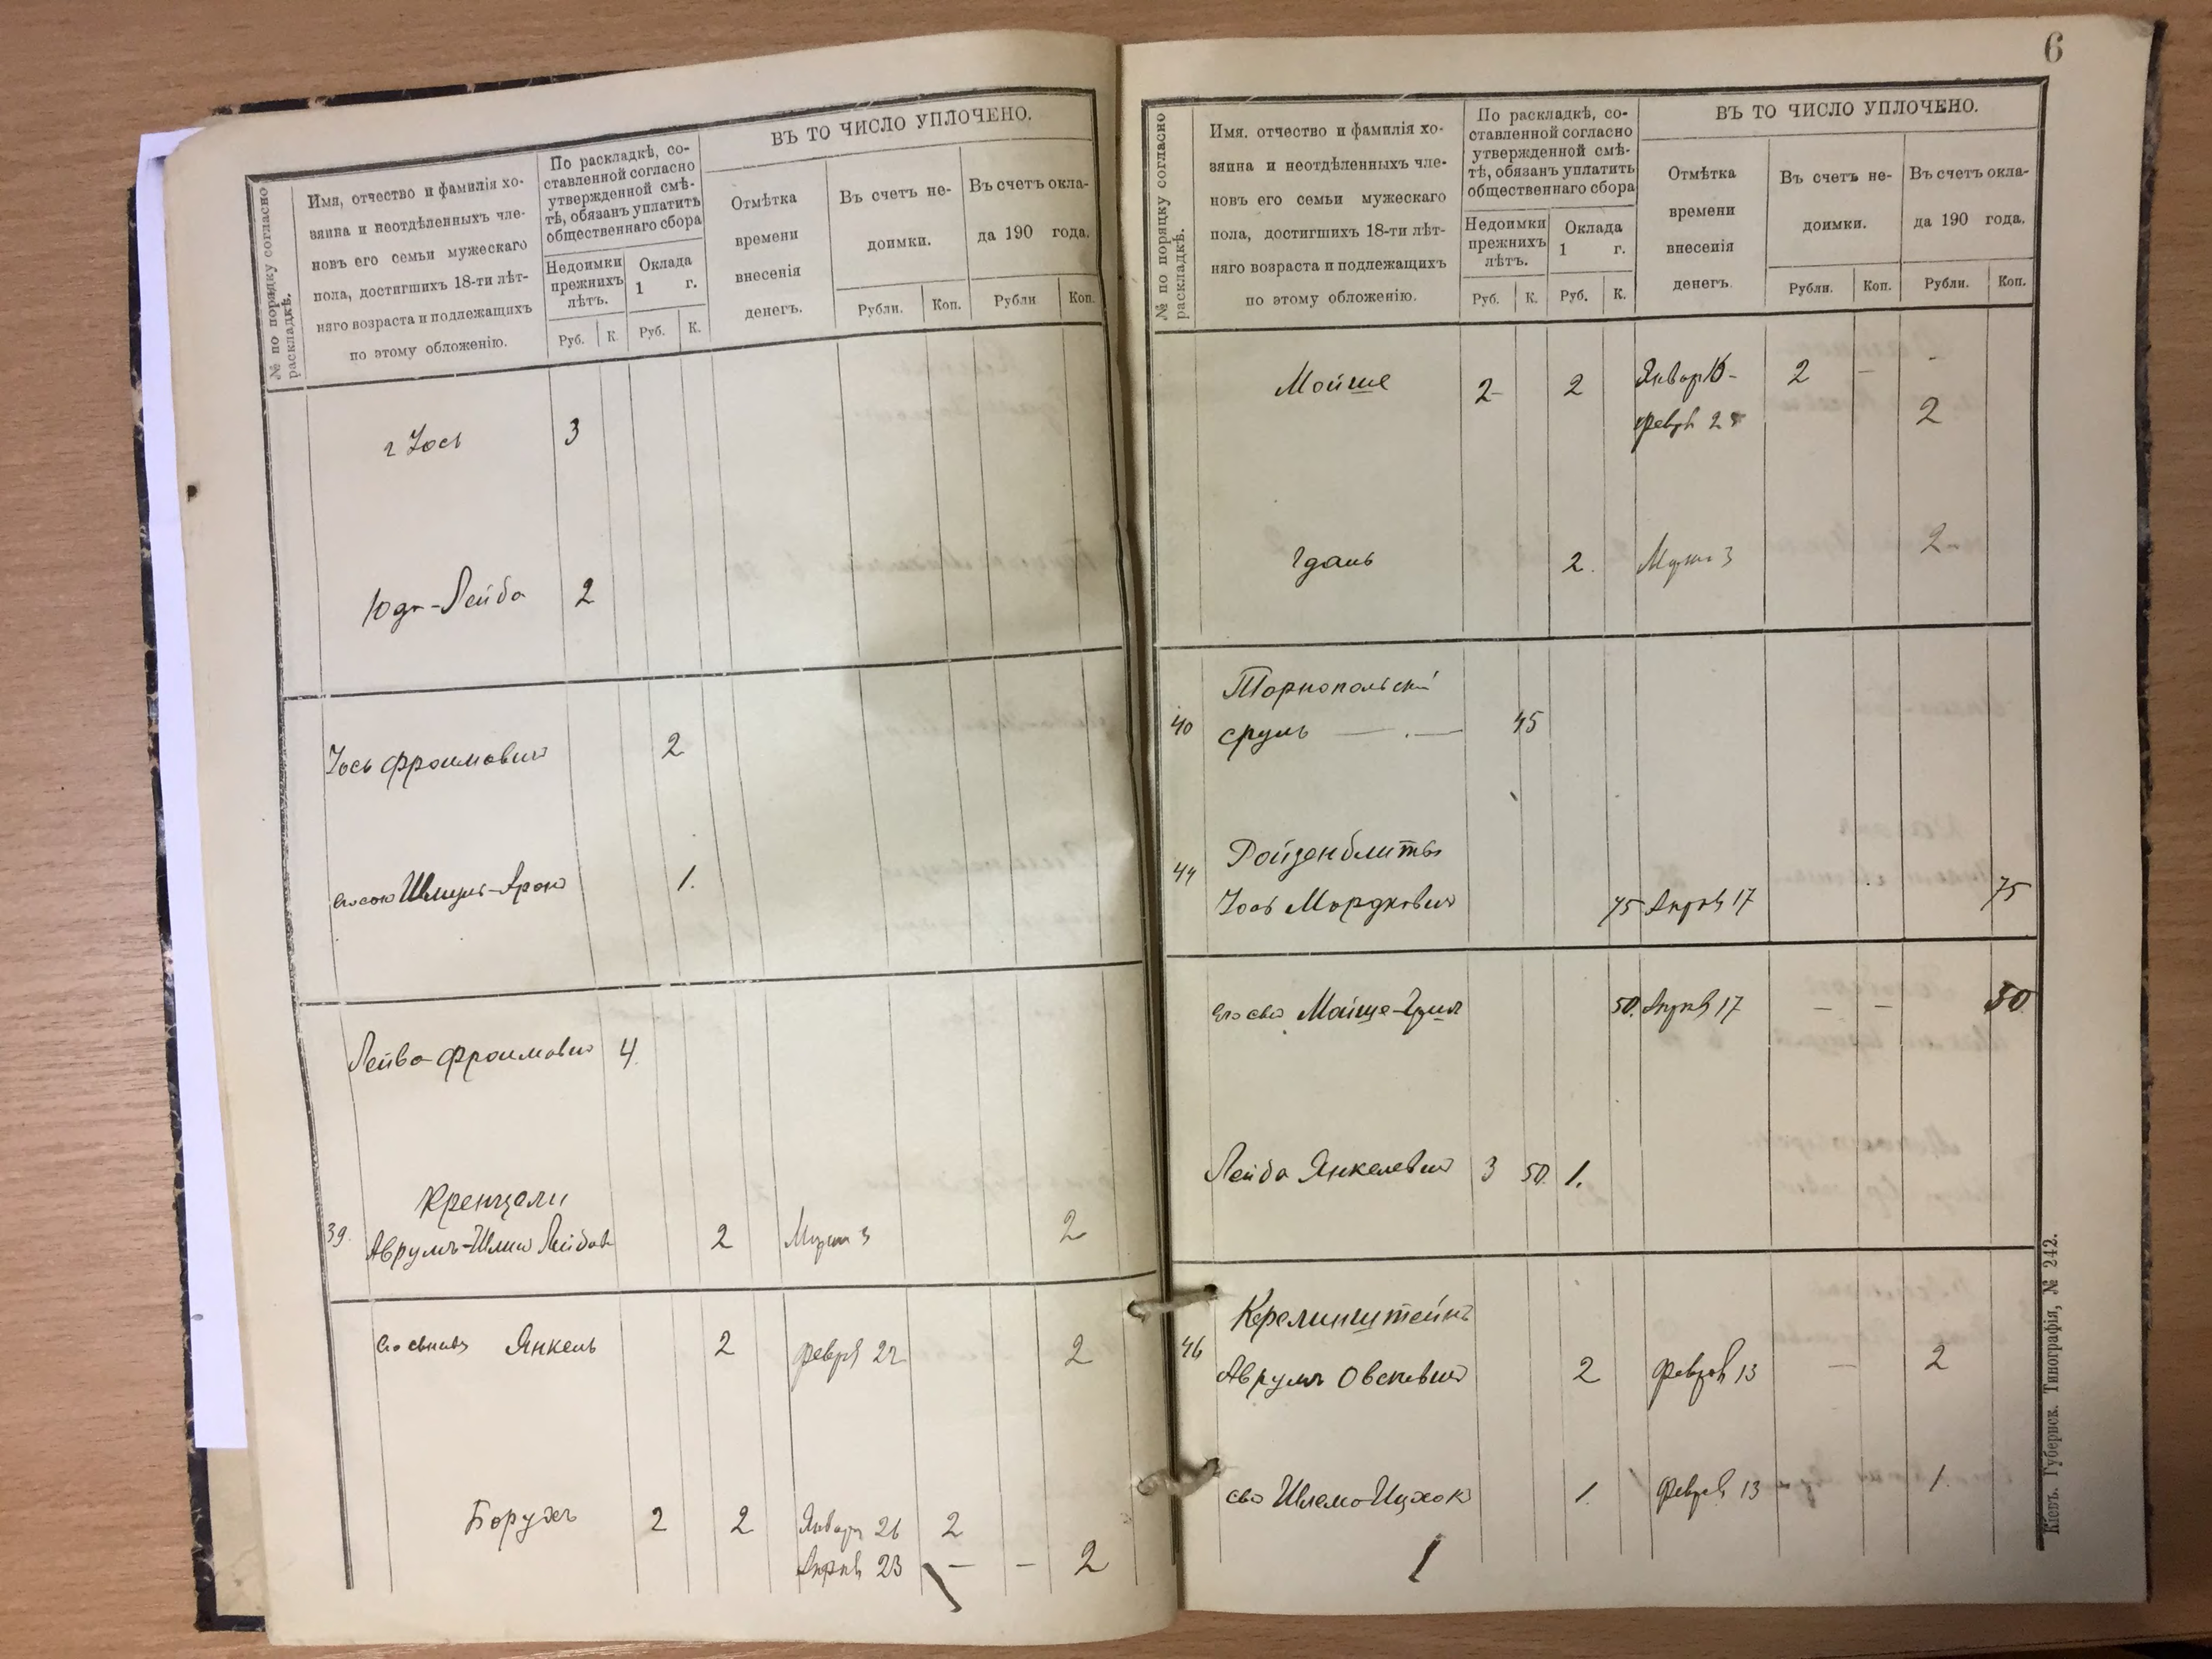 № по порядку согласно
раскладкѣ.
Имя, отчество и фамилія хо-
зяина и неотдѣленныхъ чле-
новъ его семьи мужескаго
пола, достигшихъ 18-ти лѣт-
няго возраста и подлежащихъ
по этому обложенію.
По раскладкѣ, со-
ставленной согласно
утвержденной смѣ-
тѣ, обязанъ уплатить
общественнаго сбора
Недоимки
прежнихъ
лѣтъ.
Оклада
1 г.
Руб. К. Руб. К.
ВЪ ТО ЧИСЛО УПЛОЧЕНО.
Отмѣтка
времени
внесенія
денегъ.
Въ счетъ не-
доимки.
Въ счетъ окла-
да 190 года.
Рубли. Коп. Рубли Коп.
Іось 3
Юдь-Лейба 2
Іось Фроимович 2
Шмуль-Арон 1.
Лейба Фроимович 4.
39. Аврумъ Лейбов 2 Марта 3 2
Янкель 2 Февря 22 2
Борухъ 2 2 Январ 26 2
Апрѣл 23 — — 2
6
№ по порядку согласно
раскладкѣ.
Имя, отчество и фамилія хо-
зяина и неотдѣленныхъ чле-
новъ его семьи мужескаго
пола, достигшихъ 18-ти лѣт-
няго возраста и подлежащихъ
по этому обложенію.
По раскладкѣ, со-
ставленной согласно
утвержденной смѣ-
тѣ, обязанъ уплатить
общественнаго сбора
Недоимки
прежнихъ
лѣтъ.
Оклада
1 г.
Руб. К. Руб. К.
ВЪ ТО ЧИСЛО УПЛОЧЕНО.
Отмѣтка
времени
внесенія
денегъ.
Въ счетъ не-
доимки.
Въ счетъ окла-
да 190 года.
Рубли. Коп. Рубли. Коп.
Мойше 2- 2 Январ 2 — -
Февр 2
2. Марта 3 2-
Торнопольскій
40 Сруль — . — 45
Ройзенблитъ
44 Іось Мордкович 75 Апрѣл 17 75
Мойше 50. Апрѣл 17 — — 50
Лейба Янкелевич 3 50. 1.
Керелинштейнъ
46 Аврумъ 2 Феврал 13 — 2
Шлемо Ицхок 1. Феврал 13 - 1.
Кіевъ. Губернск. Типографія, № 242.